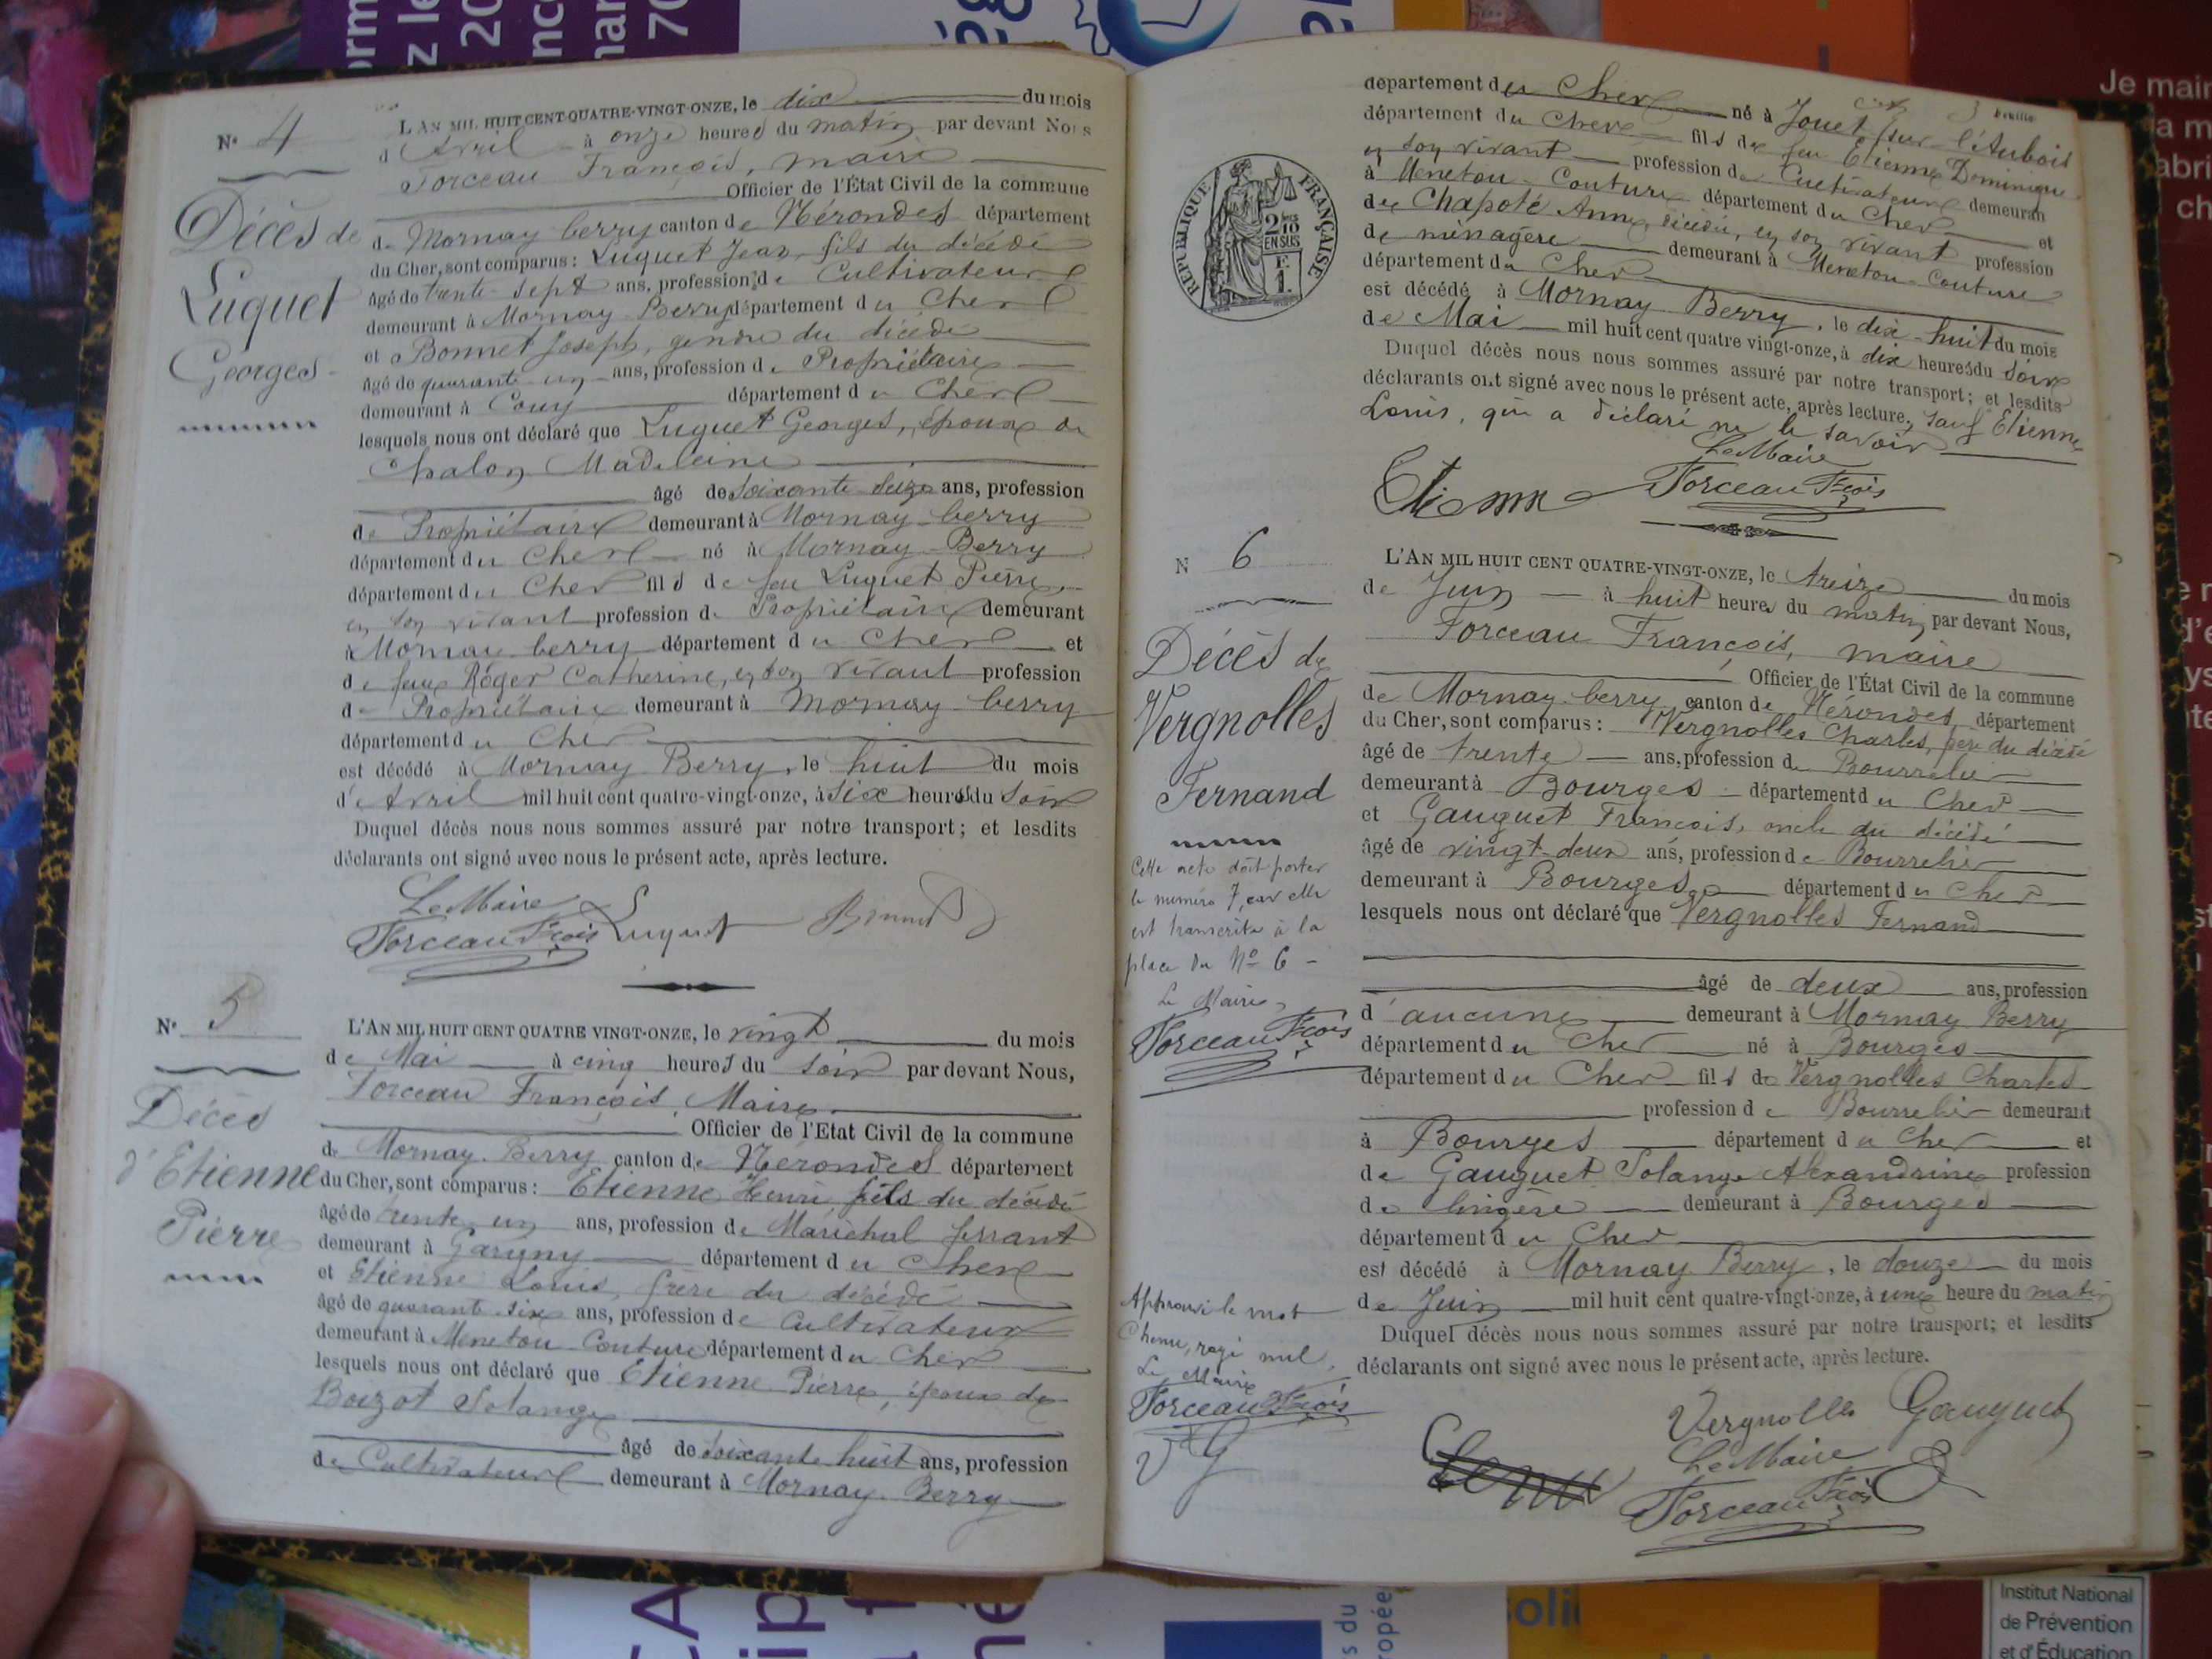 N° 4
Décès de
Luquet
Georges
L'AN MIL HUIT CENT QUATRE-VINGT-ONZE, le dix du mois
d'Avril à onze heures du matin par devant Nous
Torceau François, maire
Officier de l'État Civil de la commune
de Mornay berry canton de Nérondes département
du Cher, sont comparus : Luquet Jean, fils du décédé
âgé de trente-sept ans, profession de Cultivateur
demeurant à Mornay Berry département du Cher
et Bonnet Joseph, gendre du décédé
âgé de quarante-un ans, profession de Propriétaire
demeurant à Couy département du Cher
lesquels nous ont déclaré que Luquet Georges, époux de
Chalon Madeleine
âgé de soixante-seize ans, profession
de Propriétaire demeurant à Mornay-berry
département du Cher né à Mornay-Berry
département du Cher fils de feu Luquet Pierre,
en son vivant profession de Propriétaire demeurant
à Mornay berry département du Cher et
de feue Roger Catherine, en son vivant profession
de Propriétaire demeurant à Mornay berry
département du Cher
est décédé à Mornay Berry, le huit du mois
d'Avril mil huit cent quatre-vingt-onze, à six heures du soir
Duquel décès nous nous sommes assuré par notre transport ; et lesdits
déclarants ont signé avec nous le présent acte, après lecture.
Le Maire
Torceau Fçois Luquet Bonnet
N° 5
Décès
d'Etienne
Pierre
L'AN MIL HUIT CENT QUATRE VINGT-ONZE, le vingt du mois
de Mai à cinq heures du soir par devant Nous,
Torceau François, Maire
Officier de l'Etat Civil de la commune
de Mornay-Berry canton de Nérondes département
du Cher, sont comparus : Etienne Henri, fils du décédé
âgé de trente un ans, profession de Maréchal ferrant
demeurant à Garigny département du Cher
et Etienne Louis, frère du décédé
âgé de quarante-six ans, profession de Cultivateur
demeurant à Menetou Couture département du Cher
lesquels nous ont déclaré que Etienne Pierre, époux de
Boizot Solange
âgé de soixante huit ans, profession
de Cultivateur demeurant à Mornay-Berry
3 feuille
département du Cher né à Jouet sur l'Aubois
département du Cher fils de feu Etienne Dominique
en son vivant profession de Cultivateur demeurant
à Menetou-Couture département du Cher et
de Chapoté Anne, décédée, en son vivant profession
de ménagère demeurant à Menetou-Couture
département du Cher
est décédé à Mornay Berry, le dix-huit du mois
de Mai mil huit cent quatre vingt-onze, à dix heures du soir
Duquel décès nous nous sommes assuré par notre transport ; et lesdits
déclarants ont signé avec nous le présent acte, après lecture, sauf Etienne
Louis, qui a déclaré ne le savoir
Le Maire
Etienne Torceau Fçois
RÉPUBLIQUE FRANÇAISE
2/10 EN SUS
F. 1.
N 6
Décès de
Vergnolles
Fernand
Cette acte doit porter
le numéro 7, car elle
est transcrite à la
place du N° 6 -
Le Maire,
Torceau Fçois
L'AN MIL HUIT CENT QUATRE-VINGT-ONZE, le treize du mois
de Juin à huit heures du matin par devant Nous,
Torceau François, maire
Officier de l'État Civil de la commune
de Mornay-berry canton de Nérondes département
du Cher, sont comparus : Vergnolles Charles, père du décédé
âgé de trente ans, profession de Bourrelier
demeurant à Bourges département du Cher
et Gauguet François, oncle du décédé
âgé de vingt-deux ans, profession de Bourrelier
demeurant à Bourges département du Cher
lesquels nous ont déclaré que Vergnolles Fernand
âgé de deux ans, profession
d'aucune demeurant à Mornay Berry
département du Cher né à Bourges
département du Cher fils de Vergnolles Charles
profession de Bourrelier demeurant
à Bourges département du Cher et
de Gauguet Solange Alexandrine profession
de lingère demeurant à Bourges
département du Cher
est décédé à Mornay Berry, le douze du mois
de Juin mil huit cent quatre-vingt-onze, à une heure du matin
Duquel décès nous nous sommes assuré par notre transport ; et lesdits
déclarants ont signé avec nous le présent acte, après lecture.
Approuvé le mot
Chenu, rayé nul,
Le Maire
Torceau Fçois
V G
Vergnolles Gauguet
Le Maire
Chenu Torceau Fçois
Je main
Institut National
de Prévention
et d'Éducation